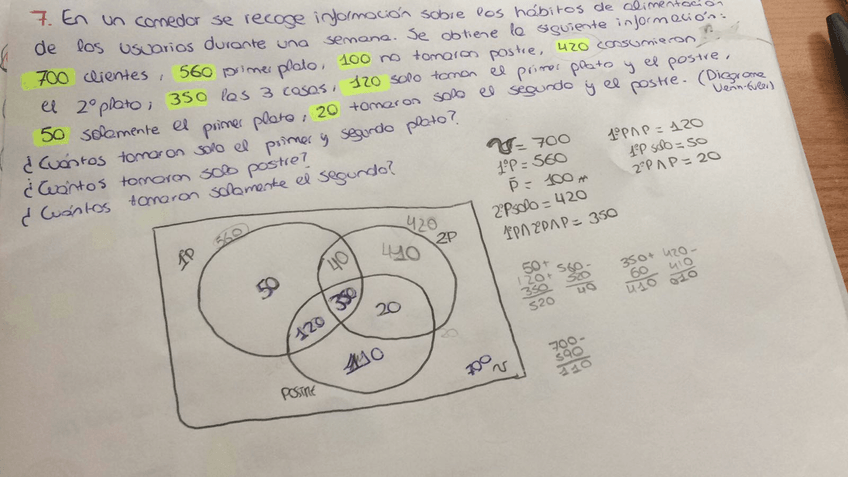 7. En un comedor se recoge información sobre los hábitos de alimentación
de los usuarios durante una semana. Se obtiene la siguiente información:
700 clientes, 560 primer plato, 100 no tomaron postre, 420 consumieron
el 2º plato; 350 las 3 cosas, 120 solo toman el primer plato y el postre,
50 solamente el primer plato, 20 tomaron solo el segundo y el postre. (Diagrama
Venn-Euler)
¿Cuántos tomaron solo el primer y segundo plato?
¿Cuántos tomaron solo postre?
¿Cuántos tomaron solamente el segundo?
= 700
1ºP = 560
P̄ = 100
2ºPsolo = 420
1ºP∧2ºP∧P = 350
1ºP∧P = 120
1ºP solo = 50
2ºP∧P = 20
1P
560
420
2P
50
40
410
350
120
20
110
Postre
700
50+
120+
350
520
560-
520
40
350+
60
410
420-
410
010
700-
590
110